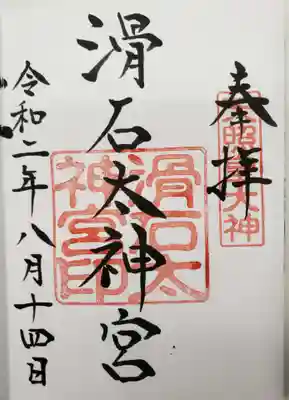 奉拝
天照大神
滑石太神宮
滑石太神宮印
令和二年八月十四日